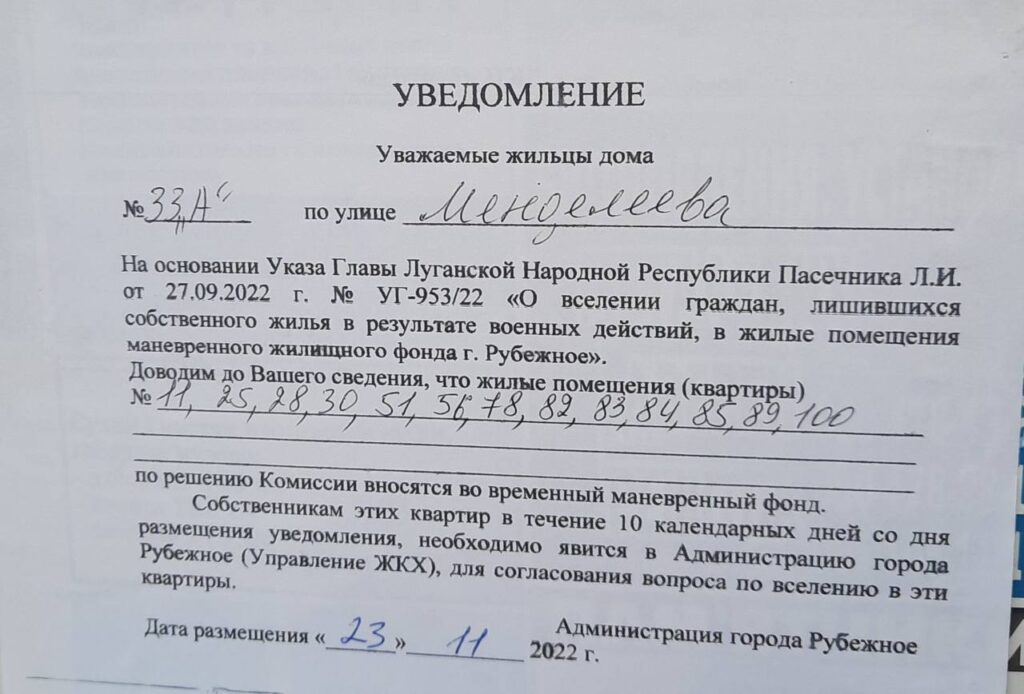 УВЕДОМЛЕНИЕ
Уважаемые жильцы дома
№ 33 „А“ по улице Менделеева
На основании Указа Главы Луганской Народной Республики Пасечника Л.И.
от 27.09.2022 г. № УГ-953/22 «О вселении граждан, лишившихся
собственного жилья в результате военных действий, в жилые помещения
маневренного жилищного фонда г. Рубежное».
Доводим до Вашего сведения, что жилые помещения (квартиры)
№ 11, 25, 28, 30, 51, 56, 78, 82, 83, 84, 85, 89, 100
по решению Комиссии вносятся во временный маневренный фонд.
Собственникам этих квартир в течение 10 календарных дней со дня
размещения уведомления, необходимо явится в Администрацию города
Рубежное (Управление ЖКХ), для согласования вопроса по вселению в эти
квартиры.
Администрация города Рубежное
Дата размещения « 23 » 11 2022 г.